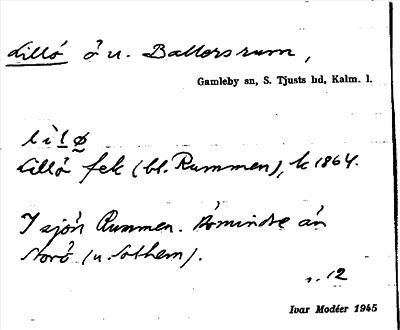 Lillö ö u. Ballersrum,
Gamleby sn, S. Tjusts hd, Kalm. l.
lìlø
Lillö fek (bl. Rummen), k 1864.
I sjön Rummen. Åmindre än
Norö (u. Lothem).
r. 12
Ivar Modéer 1945